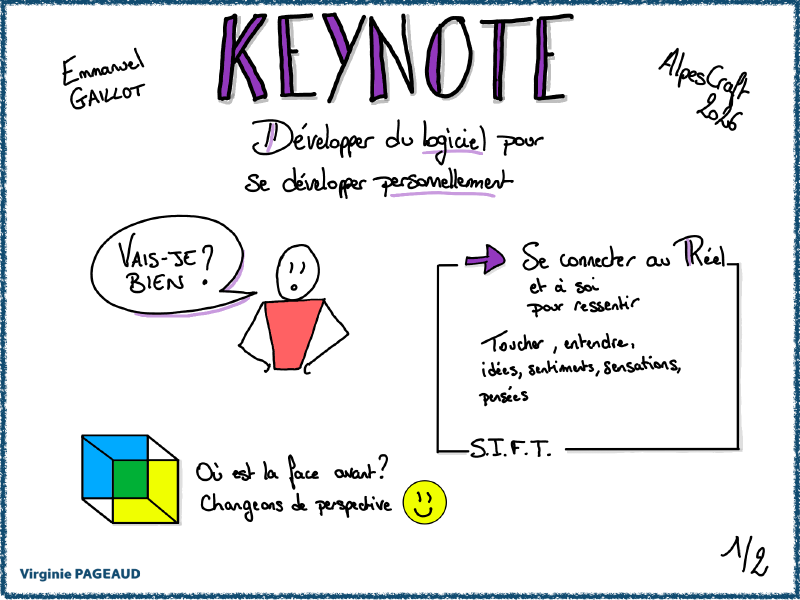 KEYNOTE
Emmanuel
GAILLOT
AlpesCraft
2026
Développer du logiciel pour
se développer personnellement
VAIS-JE
BIEN ?
Se connecter au Réel
et à soi
pour ressentir
Toucher, entendre,
idées, sentiments, sensations,
pensées
S.I.F.T.
Où est la face avant?
Changeons de perspective
1/2
Virginie PAGEAUD